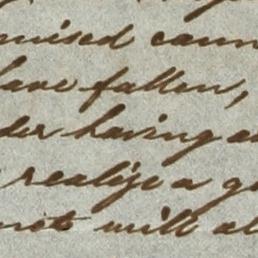 mised cann
have fallen,
der having a
realize a g
not will al